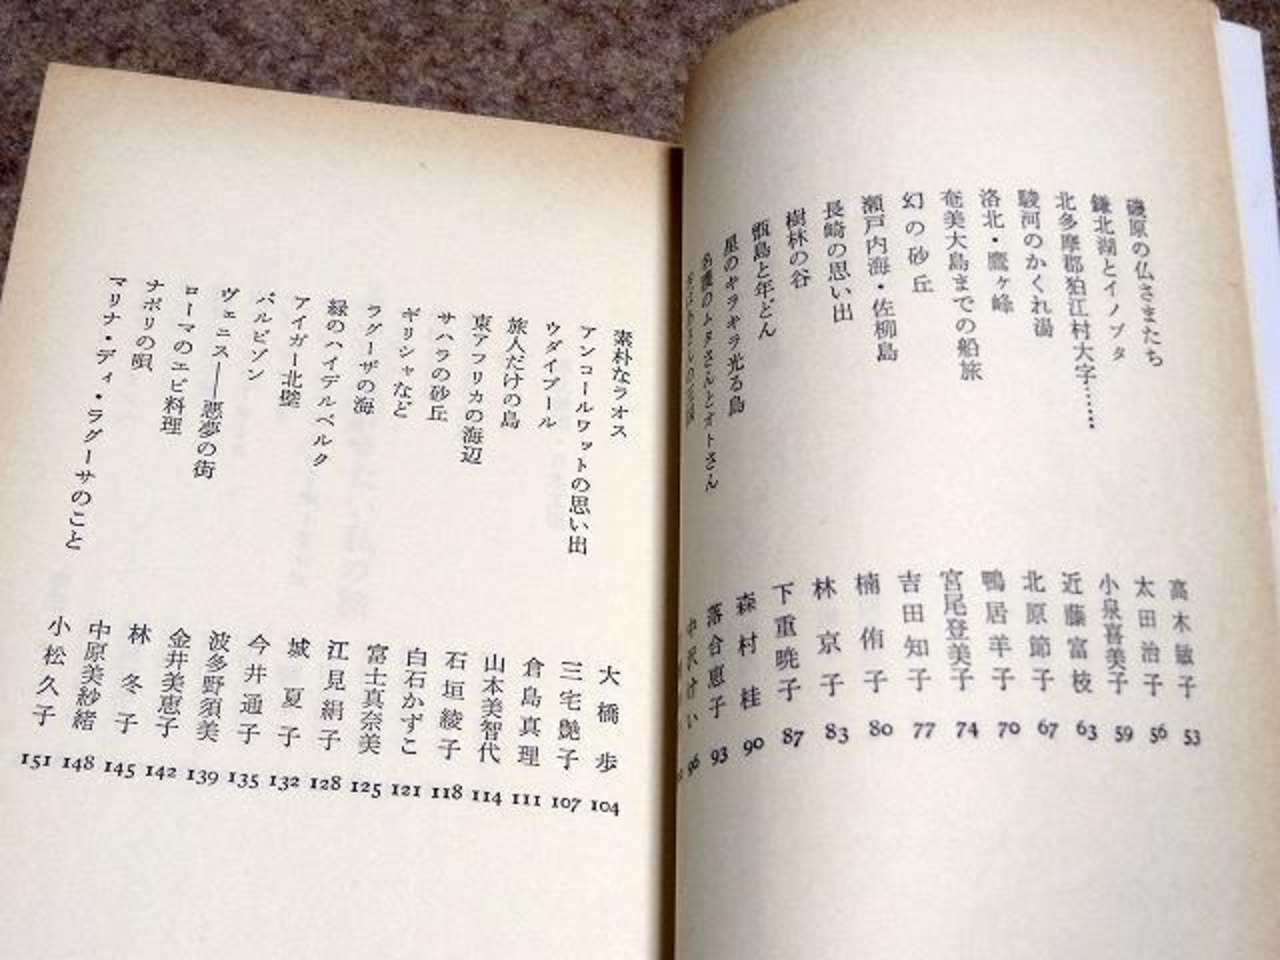 磯原の仏さまたち 高木敏子 53
鎌北湖とイノブタ 太田治子 56
北多摩郡狛江村大字…… 小泉喜美子 59
駿河のかくれ湯 近藤富枝 63
洛北・鷹ヶ峰 北原節子 67
奄美大島までの船旅 鴨居羊子 70
幻の砂丘 宮尾登美子 74
瀬戸内海・佐柳島 吉田知子 77
長崎の思い出 楠侑子 80
樹林の谷 林京子 83
甑島と年どん 下重暁子 87
星のキラキラ光る島 森村桂 90
落合恵子 93
中沢けい 96
素朴なラオス 大橋歩 104
アンコールワットの思い出 三宅艶子 107
ウダイプール 倉島真理 111
旅人だけの島 山本美智代 114
東アフリカの海辺 石垣綾子 118
サハラの砂丘 白石かずこ 121
ギリシャなど 富士真奈美 125
ラグーザの海 江見絹子 128
緑のハイデルベルク 城夏子 132
アイガー北壁 今井通子 135
バルビゾン 波多野須美 139
ヴェニス――悪夢の街 金井美恵子 142
ローマのエビ料理 林冬子 145
ナポリの唄 中原美紗緒 148
マリナ・ディ・ラグーサのこと 小松久子 151